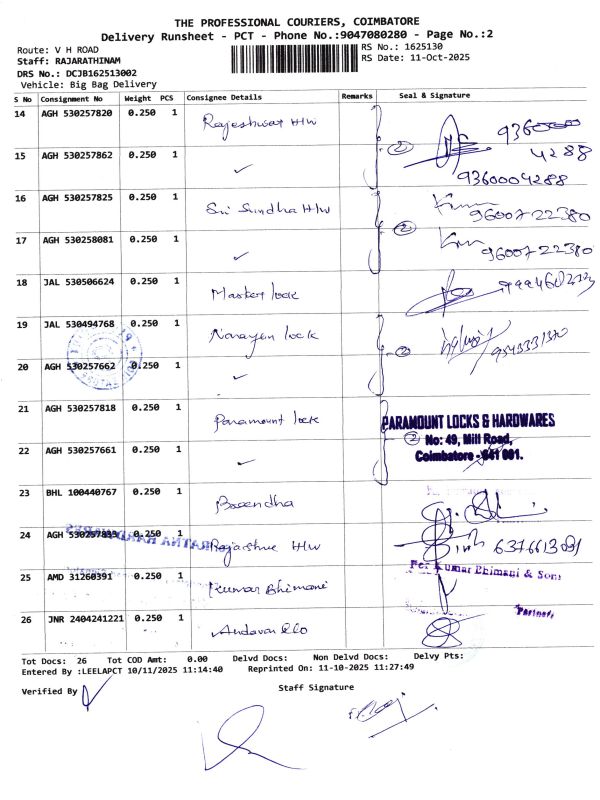 THE PROFESSIONAL COURIERS, COIMBATORE
Delivery Runsheet - PCT - Phone No.:9047080280 - Page No.:2
Route: V H ROAD
RS No.: 1625130
Staff: RAJARATHINAM
RS Date: 11-Oct-2025
DRS No.: DCJB162513002
Vehicle: Big Bag Delivery
S No Consignment No Weight PCS Consignee Details Remarks Seal & Signature
14 AGH 530257820 0.250 1 Rajeshwar H/w 93600
4288
15 AGH 530257862 0.250 1 ✓ 2
9360004288
16 AGH 530257825 0.250 1 Sri Sindha H/w 9600722380
17 AGH 530258081 0.250 1 ✓ 2 9600722380
18 JAL 530506624 0.250 1 Master lock
19 JAL 530494768 0.250 1 Narayan lock
20 AGH 530257662 0.250 1 ✓ 2
21 AGH 530257818 0.250 1 Paramount lock
PARAMOUNT LOCKS & HARDWARES
2 No: 49, Mill Road,
Coimbatore - 641 001.
22 AGH 530257661 0.250 1 ✓
23 BHL 100440767 0.250 1
24 AGH 530257833 0.250 1 Rajashree H/w 6376613091
RATNA HARDWARES
25 AMD 31260391 0.250 1 Kumar Bhimani
For Kumar Bhimani & Sons
Partner
26 JNR 2404241221 0.250 1 Andavan
Tot Docs: 26 Tot COD Amt: 0.00 Delvd Docs: Non Delvd Docs: Delvy Pts:
Entered By :LEELAPCT 10/11/2025 11:14:40 Reprinted On: 11-10-2025 11:27:49
Verified By
Staff Signature